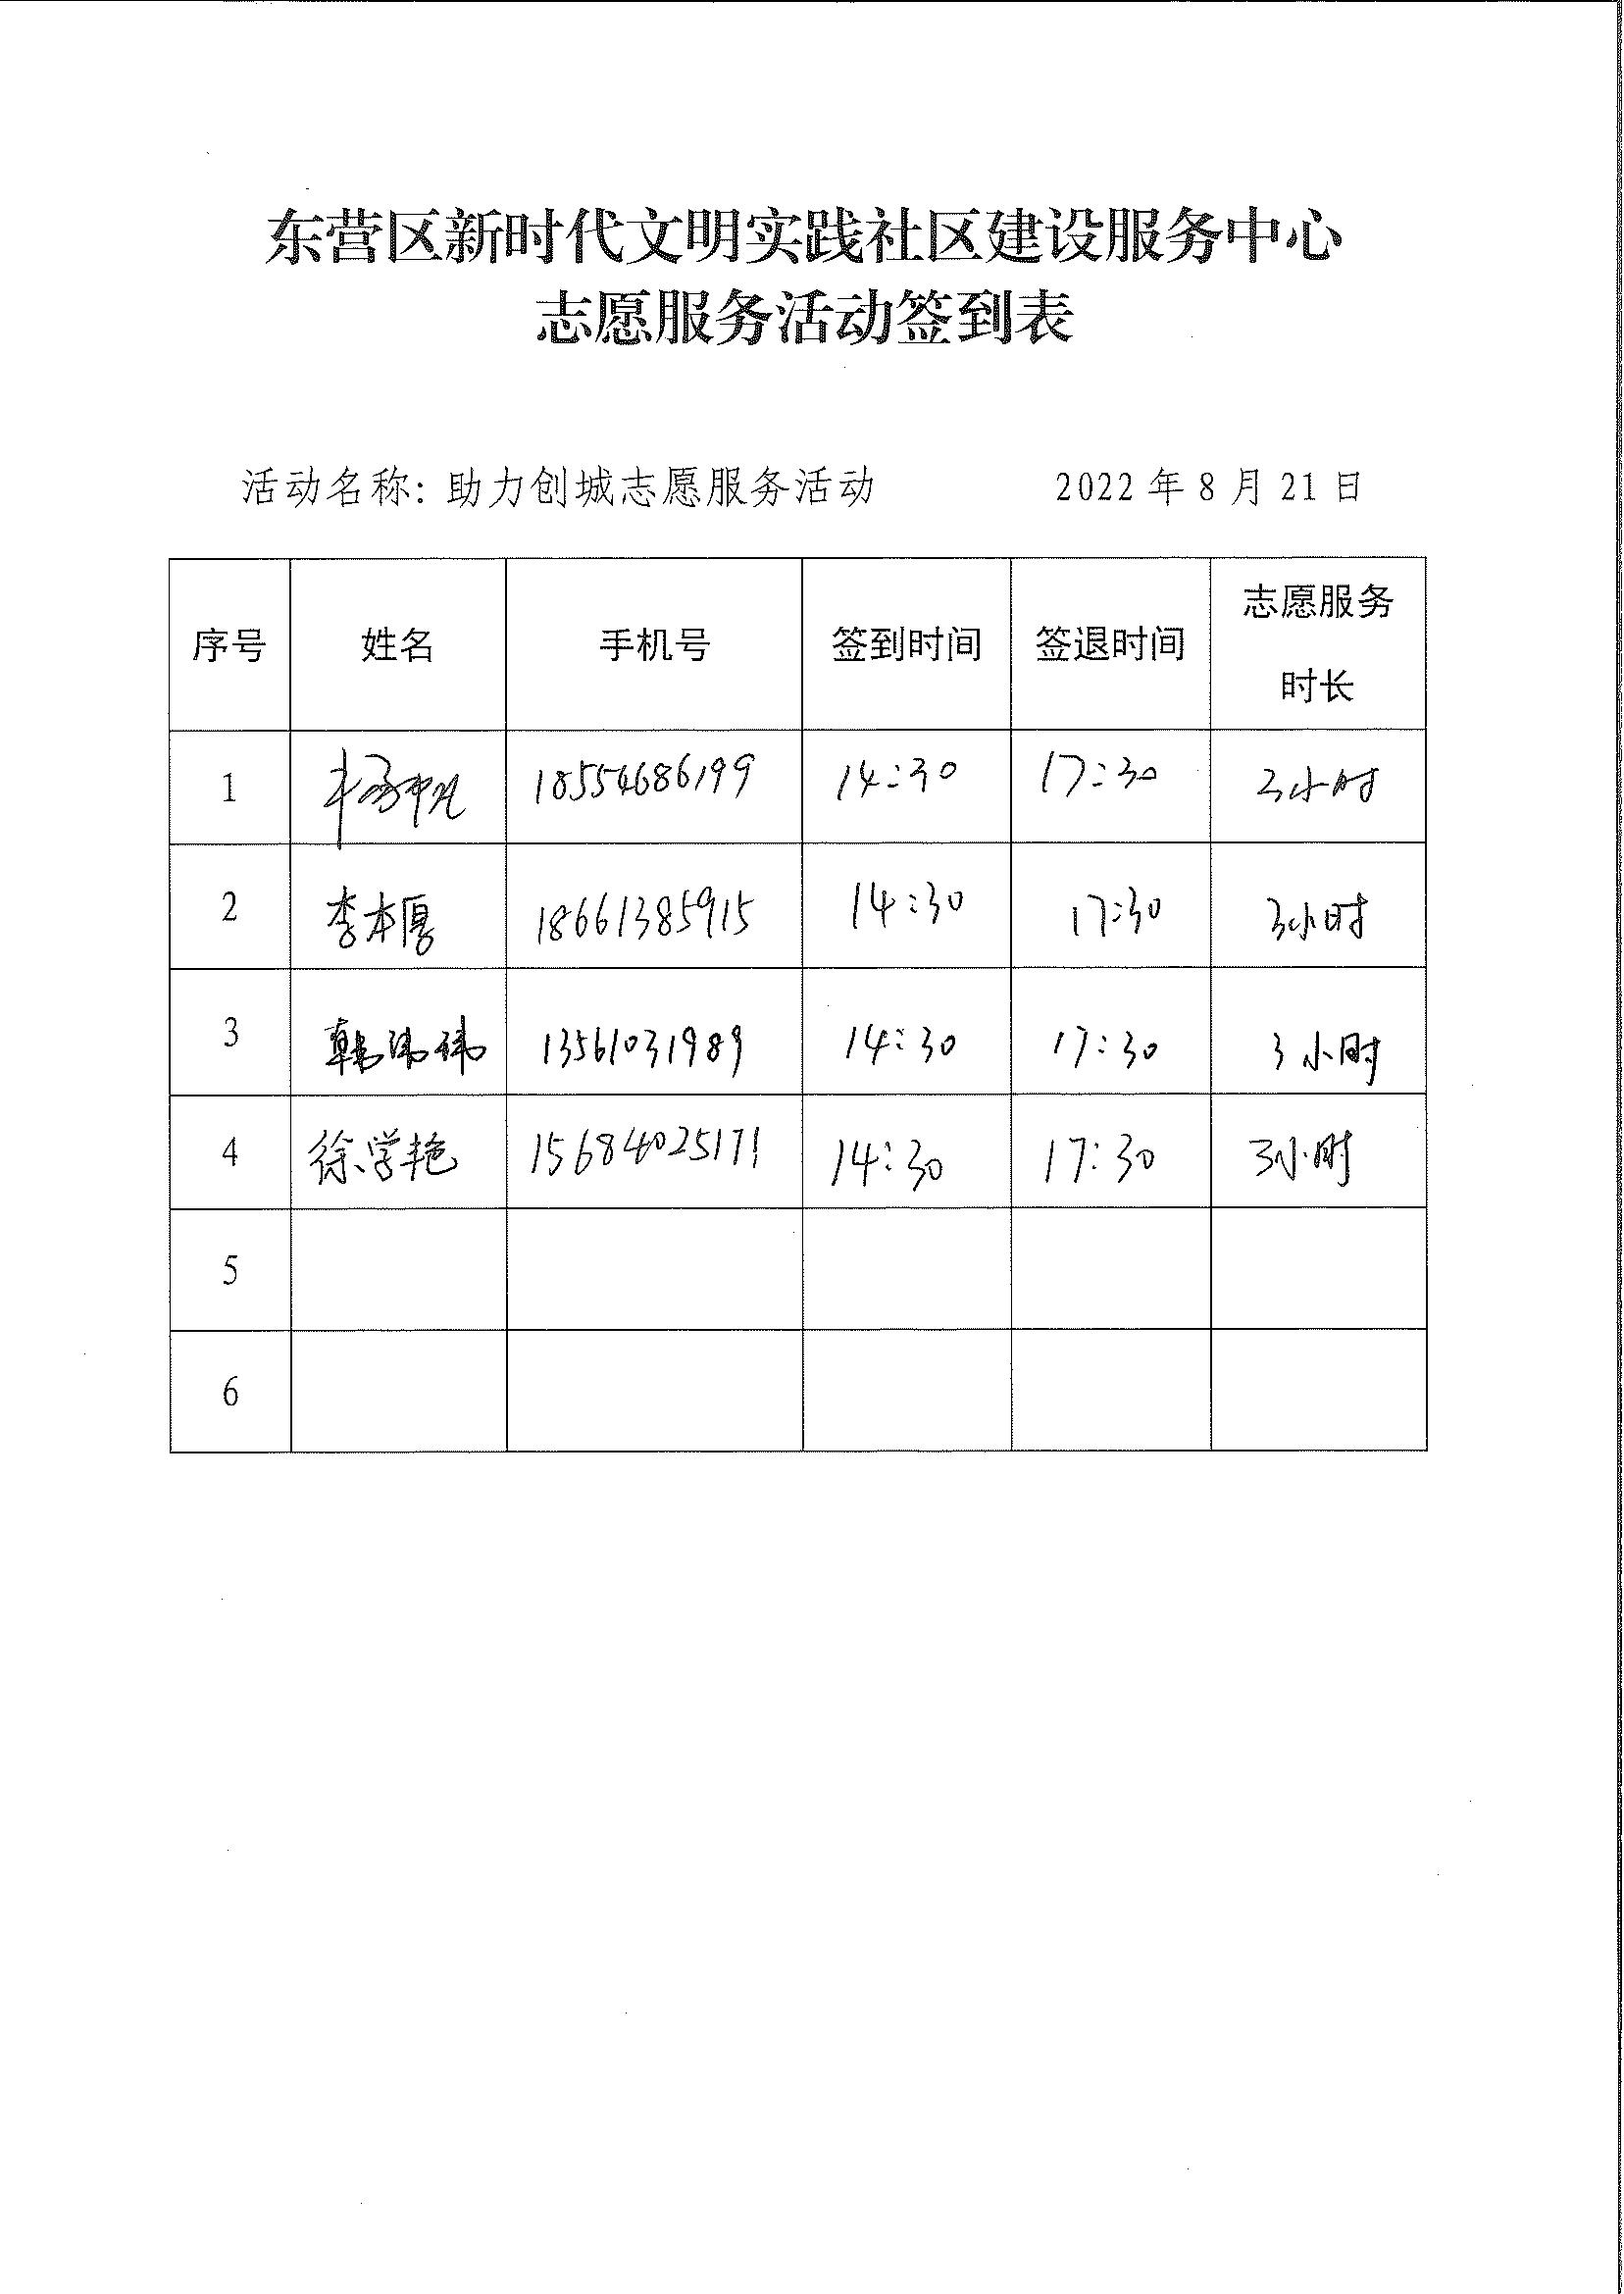 东营区新时代文明实践社区建设服务中心
志愿服务活动签到表
活动名称：助力创城志愿服务活动 2022年8月21日
序号 姓名 手机号 签到时间 签退时间 志愿服务时长
1 18554686199 14:30 17:30 3小时
2 李本厚 18661385915 14:30 17:30 3小时
3 韩 13561031989 14:30 17:30 3小时
4 徐学艳 15684025171 14:30 17:30 3小时
5
6